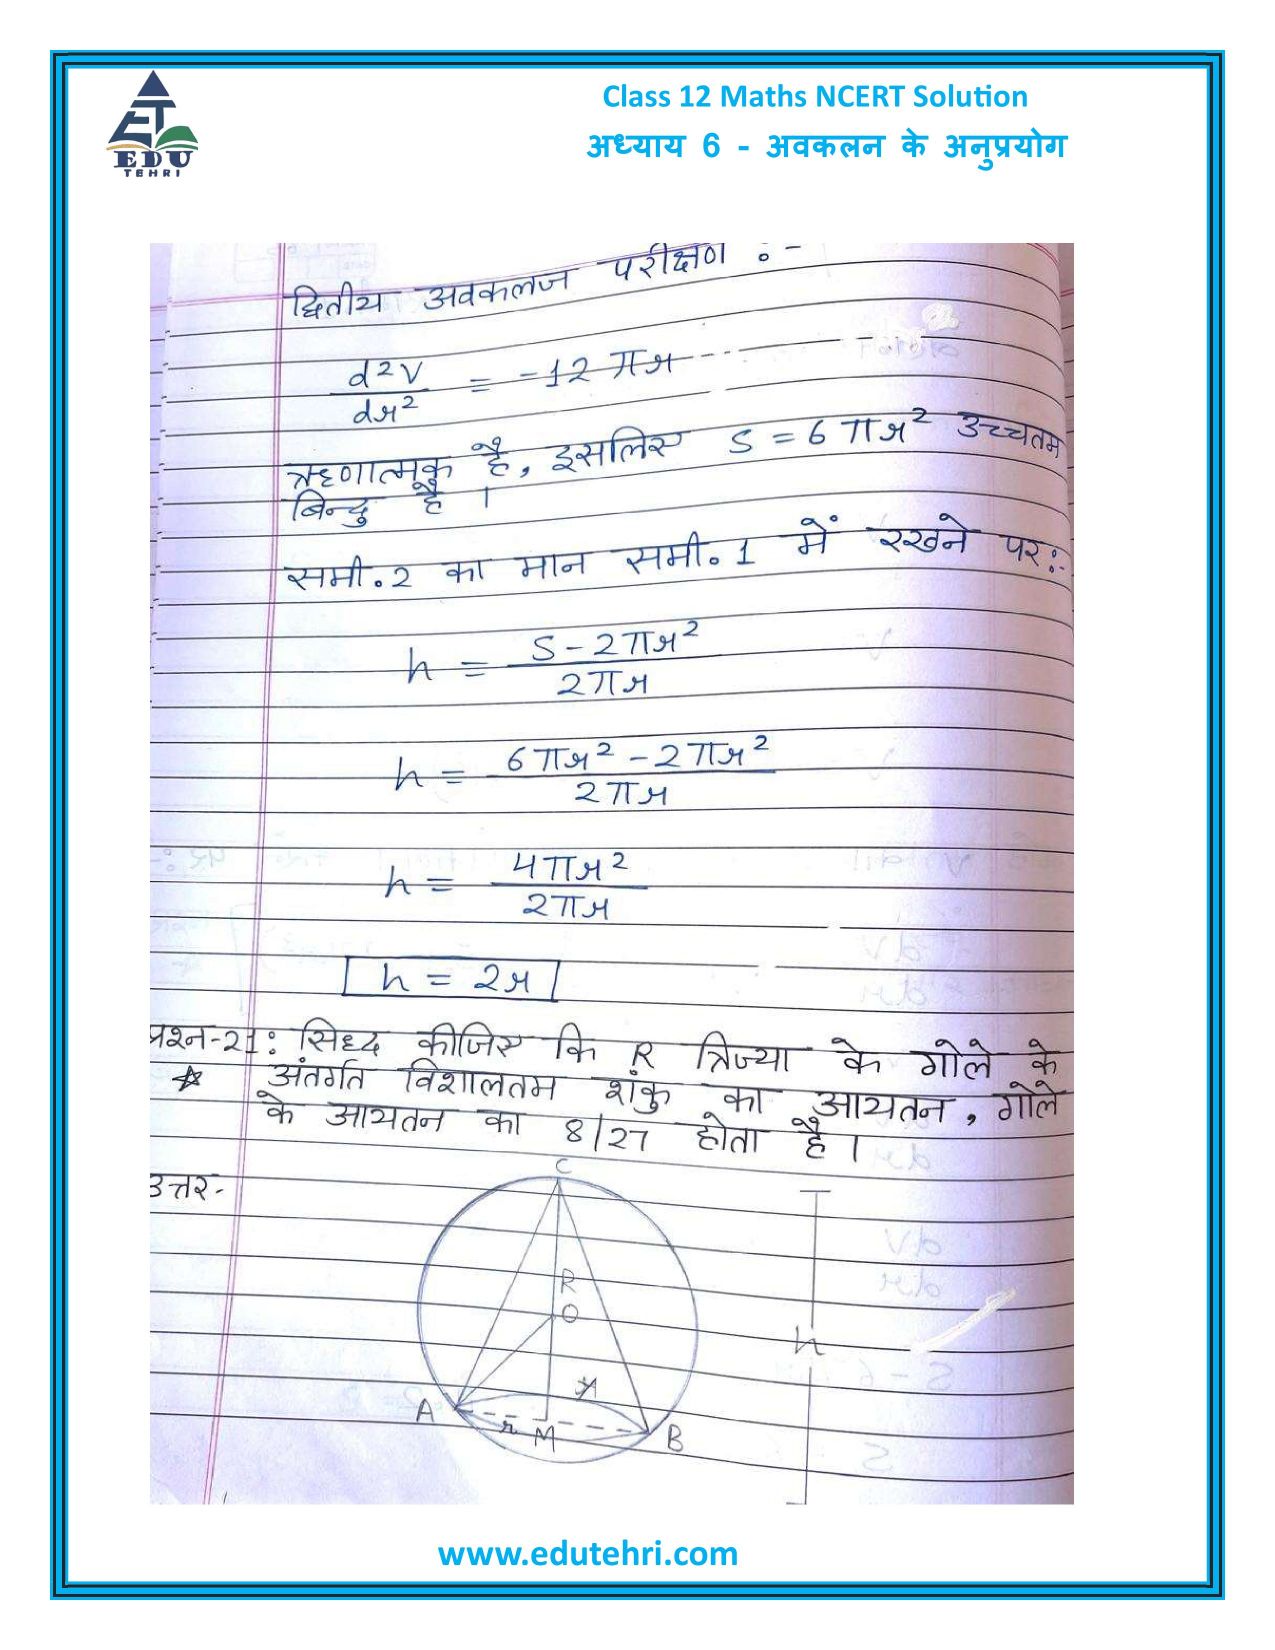 ET
EDU
TEHRI
Class 12 Maths NCERT Solution
अध्याय 6 - अवकलन के अनुप्रयोग
द्वितीय अवकलज परीक्षण :-
d²V/dr² = -12πr
ऋणात्मक है, इसलिए S = 6πr² उच्चतम
बिन्दु है ।
समी.2 का मान समी.1 में रखने पर:-
h = S - 2πr² / 2πr
h = 6πr² - 2πr² / 2πr
h = 4πr² / 2πr
h = 2r
प्रश्न-21: सिद्ध कीजिए कि R त्रिज्या के गोले के
अंतर्गत विशालतम शंकु का आयतन, गोले
के आयतन का 8/27 होता है ।
उत्तर-
C
R
O
h
A
r
M
B
www.edutehri.com